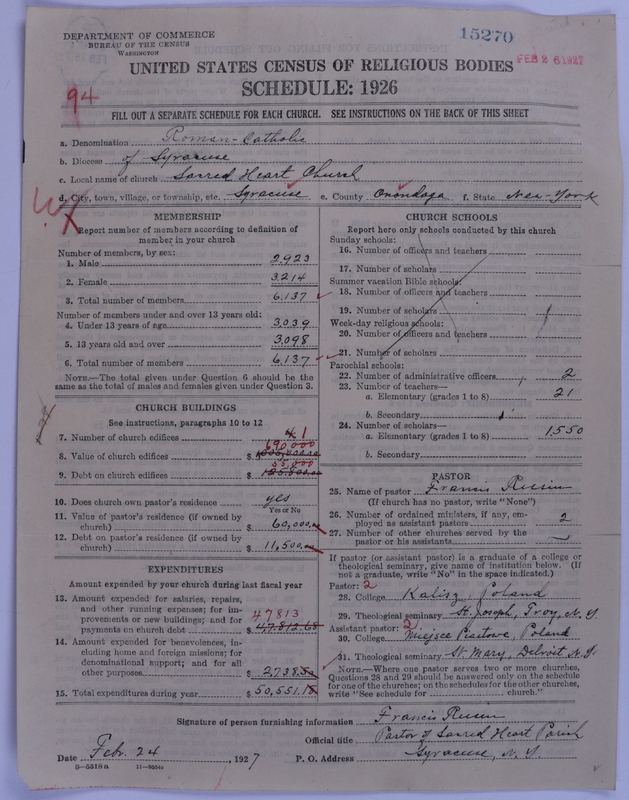 DEPARTMENT OF COMMERCE
BUREAU OF THE CENSUS
WASHINGTON
15270
FEB 26 1927
UNITED STATES CENSUS OF RELIGIOUS BODIES
SCHEDULE: 1926
94
FILL OUT A SEPARATE SCHEDULE FOR EACH CHURCH. SEE INSTRUCTIONS ON THE BACK OF THIS SHEET
a. Denomination Roman-Catholic
b. Diocese of Syracuse
c. Local name of church Sacred Heart Church
d. City, town, village, or township, etc. Syracuse e. County Onondaga f. State New-York
MEMBERSHIP
Report number of members according to definition of
member in your church
Number of members, by sex:
1. Male 2923
2. Female 3214
3. Total number of members 6137
Number of members under and over 13 years old:
4. Under 13 years of age 3,039
5. 13 years old and over 3,098
6. Total number of members 6,137
NOTE.—The total given under Question 6 should be
same as the total of males and females given under Question 3.
CHURCH BUILDINGS
See instructions, paragraphs 10 to 12
7. Number of church edifices 1
690000
8. Value of church edifices $
55,000
9. Debt on church edifices $ 125.000.00
10. Does church own pastor's residence yes
Yes or No
11. Value of pastor's residence (if owned by
church) $ 60,000.00
12. Debt on pastor's residence (if owned by
church) $ 11,500.00
EXPENDITURES
Amount expended by your church during last fiscal year
13. Amount expended for salaries, repairs,
and other running expenses; for im-
provements or new buildings; and for 47813
payments on church debt $ 47,812.68
14. Amount expended for benevolences, in-
cluding home and foreign missions; for
denominational support; and for all
other purposes $ 2,738.50
15. Total expenditures during year $ 50,551.18
CHURCH SCHOOLS
Report here only schools conducted by this church
Sunday schools:
16. Number of officers and teachers
17. Number of scholars
Summer vacation Bible schools:
18. Number of officers and teachers
19. Number of scholars
Week-day religious schools:
20. Number of officers and teachers
21. Number of scholars
Parochial schools:
22. Number of administrative officers 2
23. Number of teachers—
a. Elementary (grades 1 to 8) 21
b. Secondary
24. Number of scholars—
a. Elementary (grades 1 to 8) 1550
b. Secondary
PASTOR
25. Name of pastor Francis Rusin
(If church has no pastor, write "None")
26. Number of ordained ministers, if any, em-
ployed as assistant pastors 2
27. Number of other churches served by the
pastor or his assistants
If pastor (or assistant pastor) is a graduate of a college or
theological seminary, give name of institution below. (If
not a graduate, write "No" in the space indicated.)
Pastor: 2
28. College Kalisz, Poland
29. Theological seminary St. Joseph, Troy, N.Y.
Assistant pastor: 2
30. College Miejsce Piastowe, Poland
31. Theological seminary St. Mary, Detroit,
NOTE.—Where one pastor serves two or more churches,
Questions 28 and 29 should be answered only on the schedule
for one of the churches; on the schedules for the other churches,
write "See schedule for church."
Signature of person furnishing information Francis Rusin
Official title Pastor of Sacred Heart Parish
Date Feb. 24, 1927 P. O. Address Syracuse, N.Y.
S—5518 a